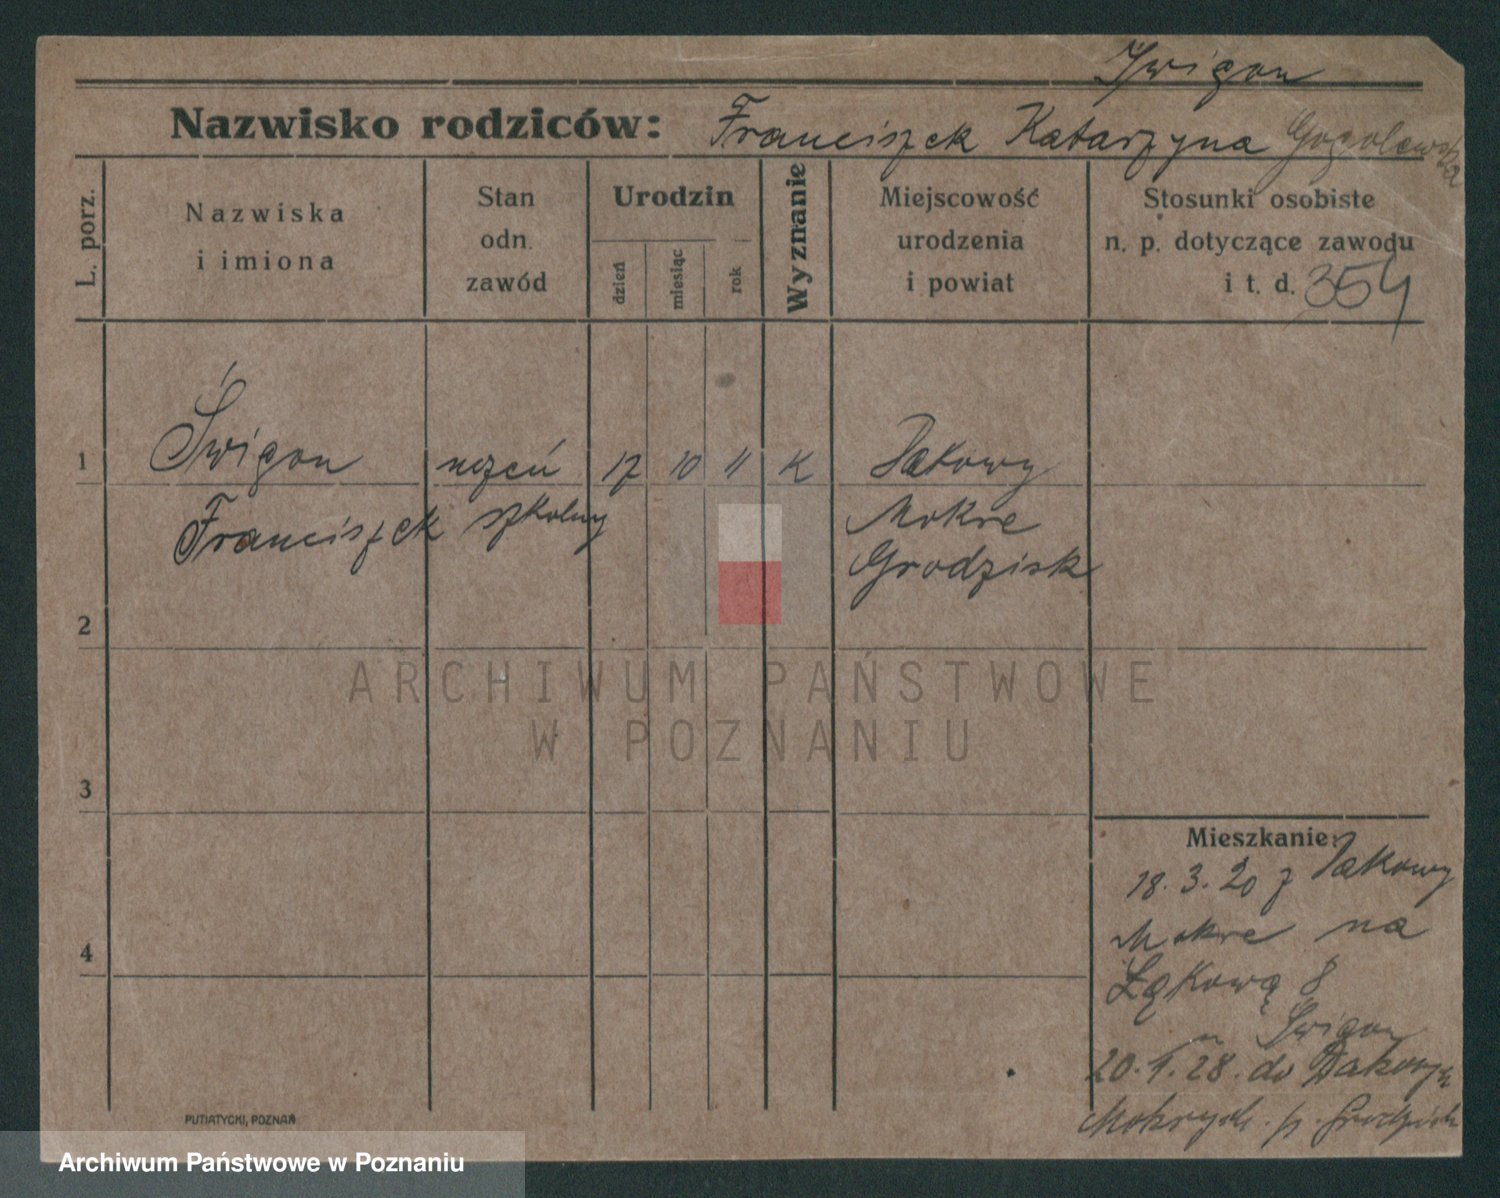 Świgon
Nazwisko rodziców: Franciszek Katarzyna Gogolewska
L. porz.
Nazwiska
i imiona
Stan
odn.
zawód
Urodzin
dzień
miesiąc
rok
Wyznanie
Miejscowość
urodzenia
i powiat
Stosunki osobiste
n. p. dotyczące zawodu
i t. d. 354
1 Świgon uczeń 17 10 11 K Dakowy
Franciszek szkolny Mokre
Grodzisk
2
3
4
ARCHIWUM PAŃSTWOWE
W POZNANIU
Mieszkanie:
18. 3. 20 z Dakowy
Mokre na
Łąkową 8
u Świgon
20. 1. 28. do Dakowych
Mokrych. p. Grodzisk
PUTIATYCKI, POZNAŃ
Archiwum Państwowe w Poznaniu